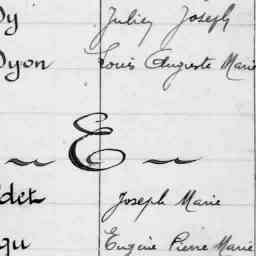 Dy Julien Joseph
Dyon Louis Auguste Marie
~ E ~
det Joseph Marie
Eugène Pierre Marie